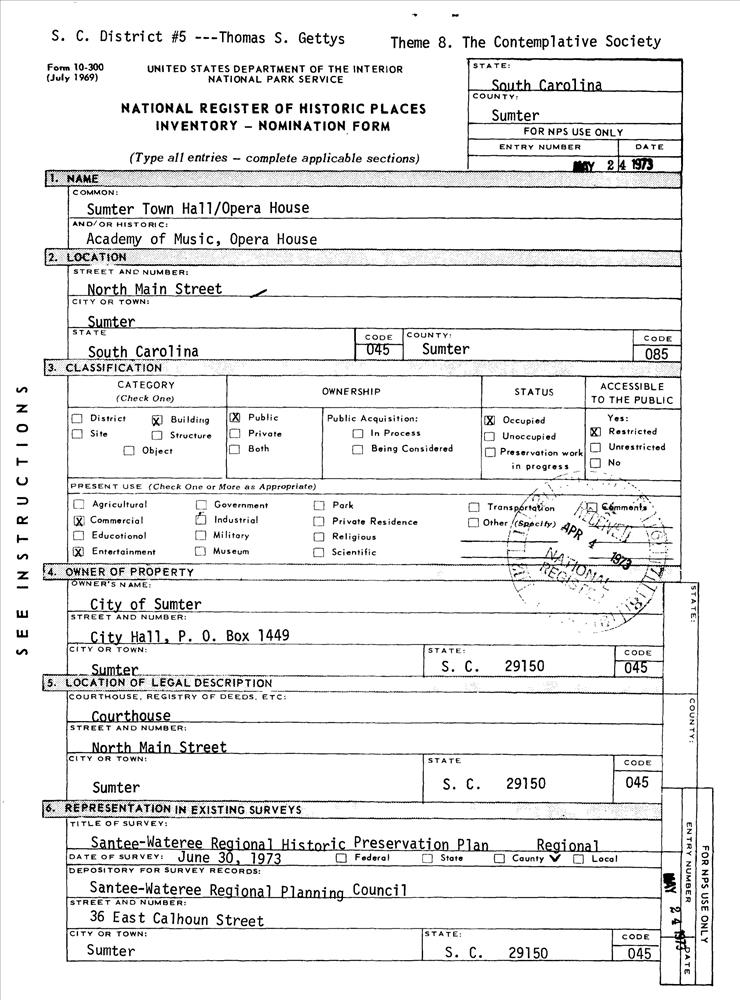 S. C. District #5 ---Thomas S. Gettys
Theme 8. The Contemplative Society
Form 10-300
(July 1969)
UNITED STATES DEPARTMENT OF THE INTERIOR
NATIONAL PARK SERVICE
NATIONAL REGISTER OF HISTORIC PLACES
INVENTORY – NOMINATION FORM
(Type all entries – complete applicable sections)
STATE:
South Carolina
COUNTY:
Sumter
FOR NPS USE ONLY
ENTRY NUMBER DATE
MAY 24 1973
1. NAME
COMMON:
Sumter Town Hall/Opera House
AND/OR HISTORIC:
Academy of Music, Opera House
2. LOCATION
STREET AND NUMBER:
North Main Street
CITY OR TOWN:
Sumter
STATE CODE COUNTY: CODE
South Carolina 045 Sumter 085
3. CLASSIFICATION
CATEGORY
(Check One)
OWNERSHIP
STATUS
ACCESSIBLE
TO THE PUBLIC
☐ District ☒ Building
☐ Site ☐ Structure
☐ Object
☒ Public
☐ Private
☐ Both
Public Acquisition:
☐ In Process
☐ Being Considered
☒ Occupied
☐ Unoccupied
☐ Preservation work
in progress
Yes:
☒ Restricted
☐ Unrestricted
☐ No
PRESENT USE (Check One or More as Appropriate)
☐ Agricultural ☐ Government ☐ Park ☐ Transportation ☐ Comments
☒ Commercial ☐ Industrial ☐ Private Residence ☐ Other (Specify)
☐ Educational ☐ Military ☐ Religious
☒ Entertainment ☐ Museum ☐ Scientific
RECEIVED
APR 4 1973
NATIONAL
REGISTER
4. OWNER OF PROPERTY
OWNER'S NAME:
City of Sumter
STREET AND NUMBER:
City Hall, P. O. Box 1449
CITY OR TOWN: STATE: CODE
Sumter S. C. 29150 045
5. LOCATION OF LEGAL DESCRIPTION
COURTHOUSE, REGISTRY OF DEEDS, ETC:
Courthouse
STREET AND NUMBER:
North Main Street
CITY OR TOWN: STATE CODE
Sumter S. C. 29150 045
6. REPRESENTATION IN EXISTING SURVEYS
TITLE OF SURVEY:
Santee-Wateree Regional Historic Preservation Plan Regional
DATE OF SURVEY: June 30, 1973 ☐ Federal ☐ State ☐ County ✓ ☐ Local
DEPOSITORY FOR SURVEY RECORDS:
Santee-Wateree Regional Planning Council
STREET AND NUMBER:
36 East Calhoun Street
CITY OR TOWN: STATE: CODE
Sumter S. C. 29150 045
SEE INSTRUCTIONS
STATE:
COUNTY:
ENTRY NUMBER
DATE
MAY 24 1973
FOR NPS USE ONLY